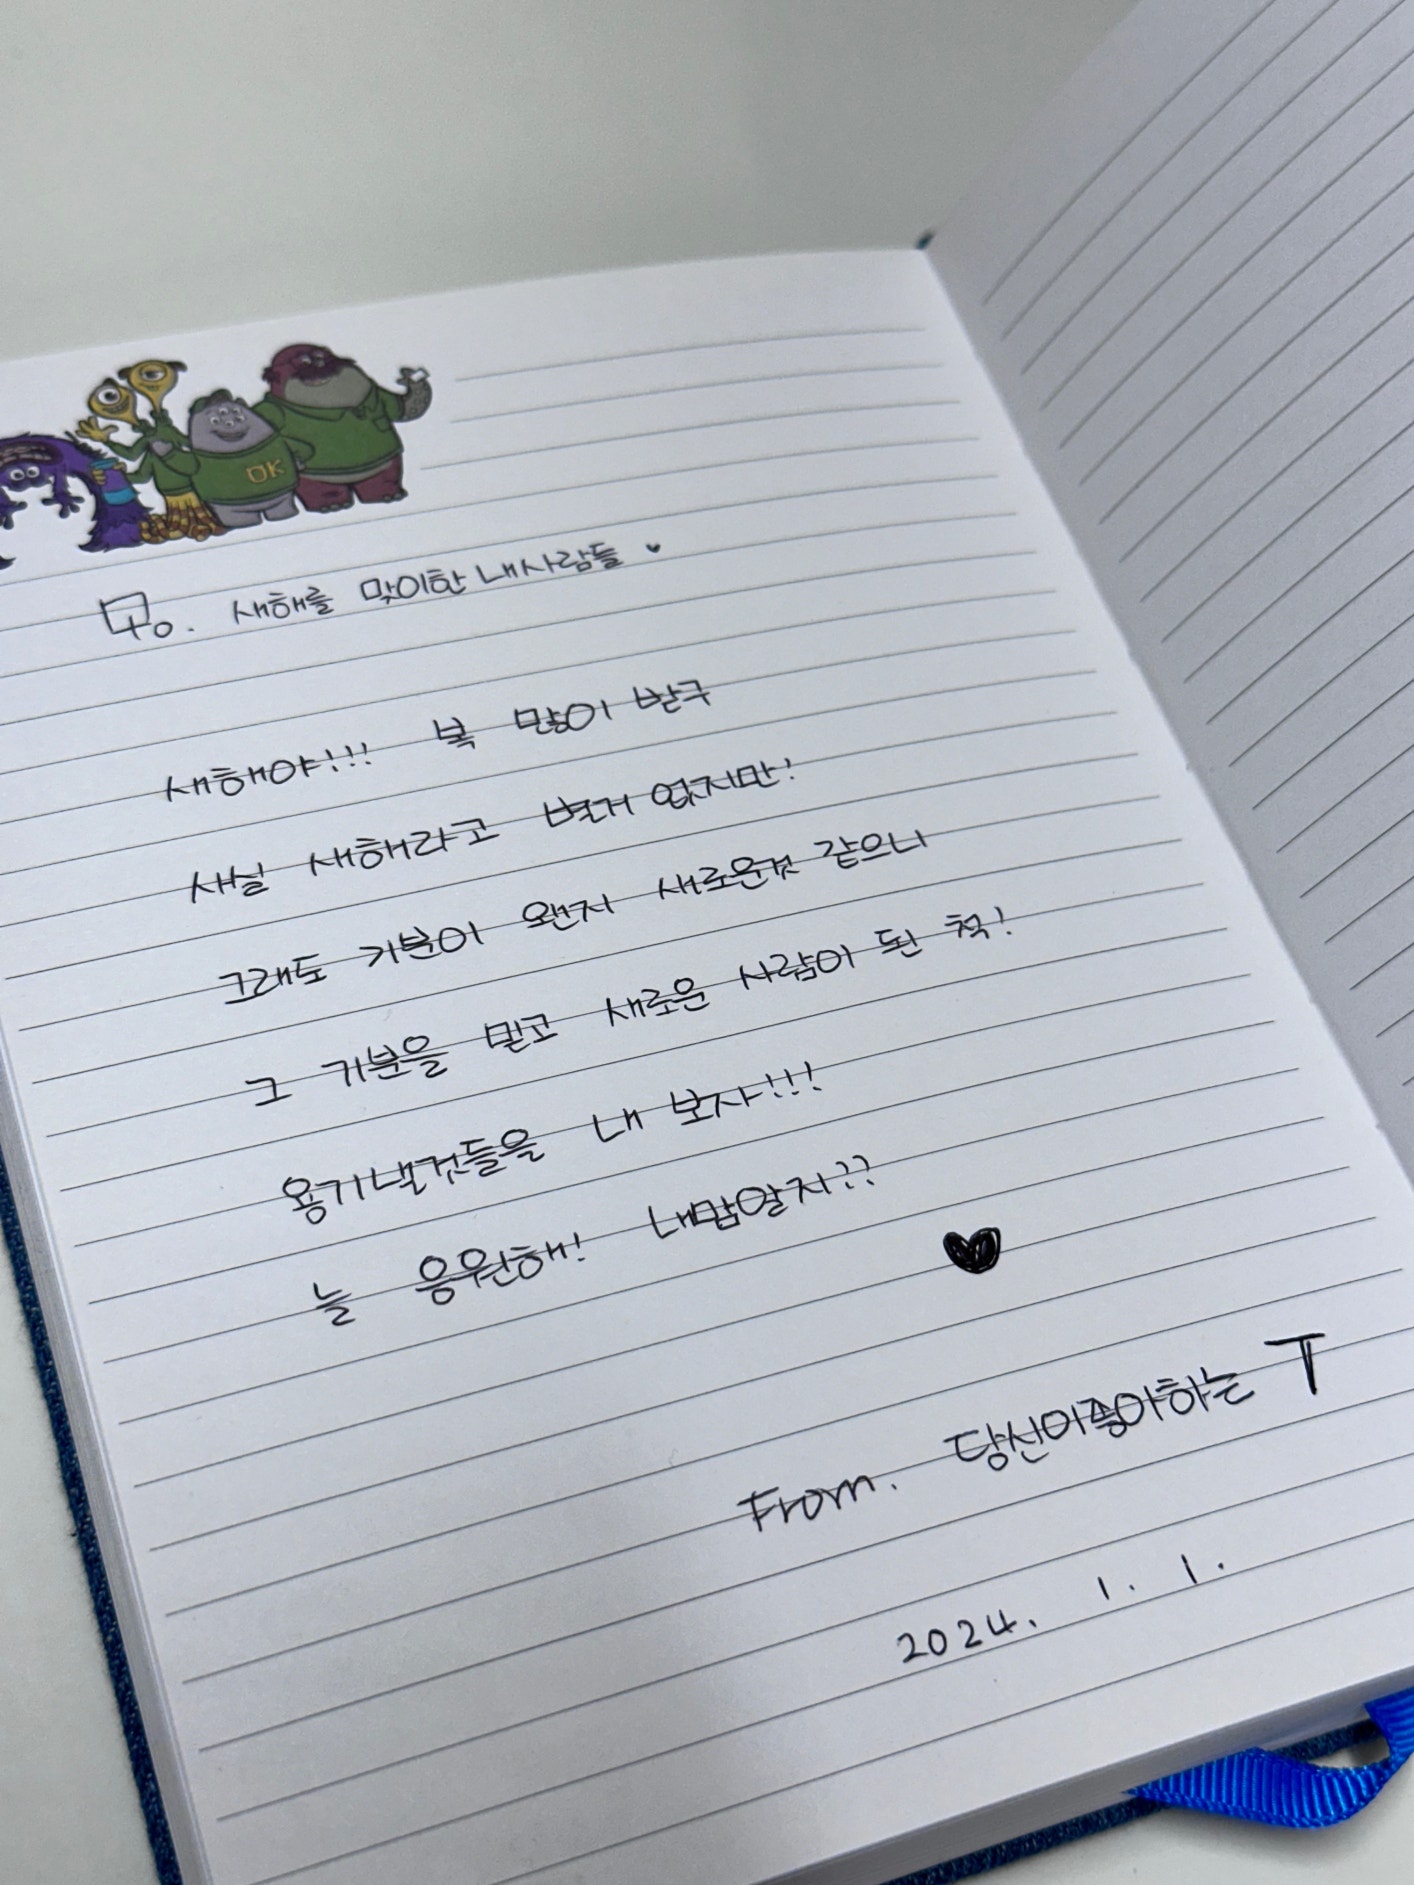 OK
To. 새해를 맞이한 내사람들
새해야!!! 복 많이 받구
새실 새해라고 별거 없지만!
그래도 기분이 왠지 새로운것 같으니
그 기분을 믿고 새로운 사람이 된 척!
용기낼것들을 내 보자!!!
늘 응원해! 내맘알지??
From. 당신이좋아하는 T
2024. 1. 1.